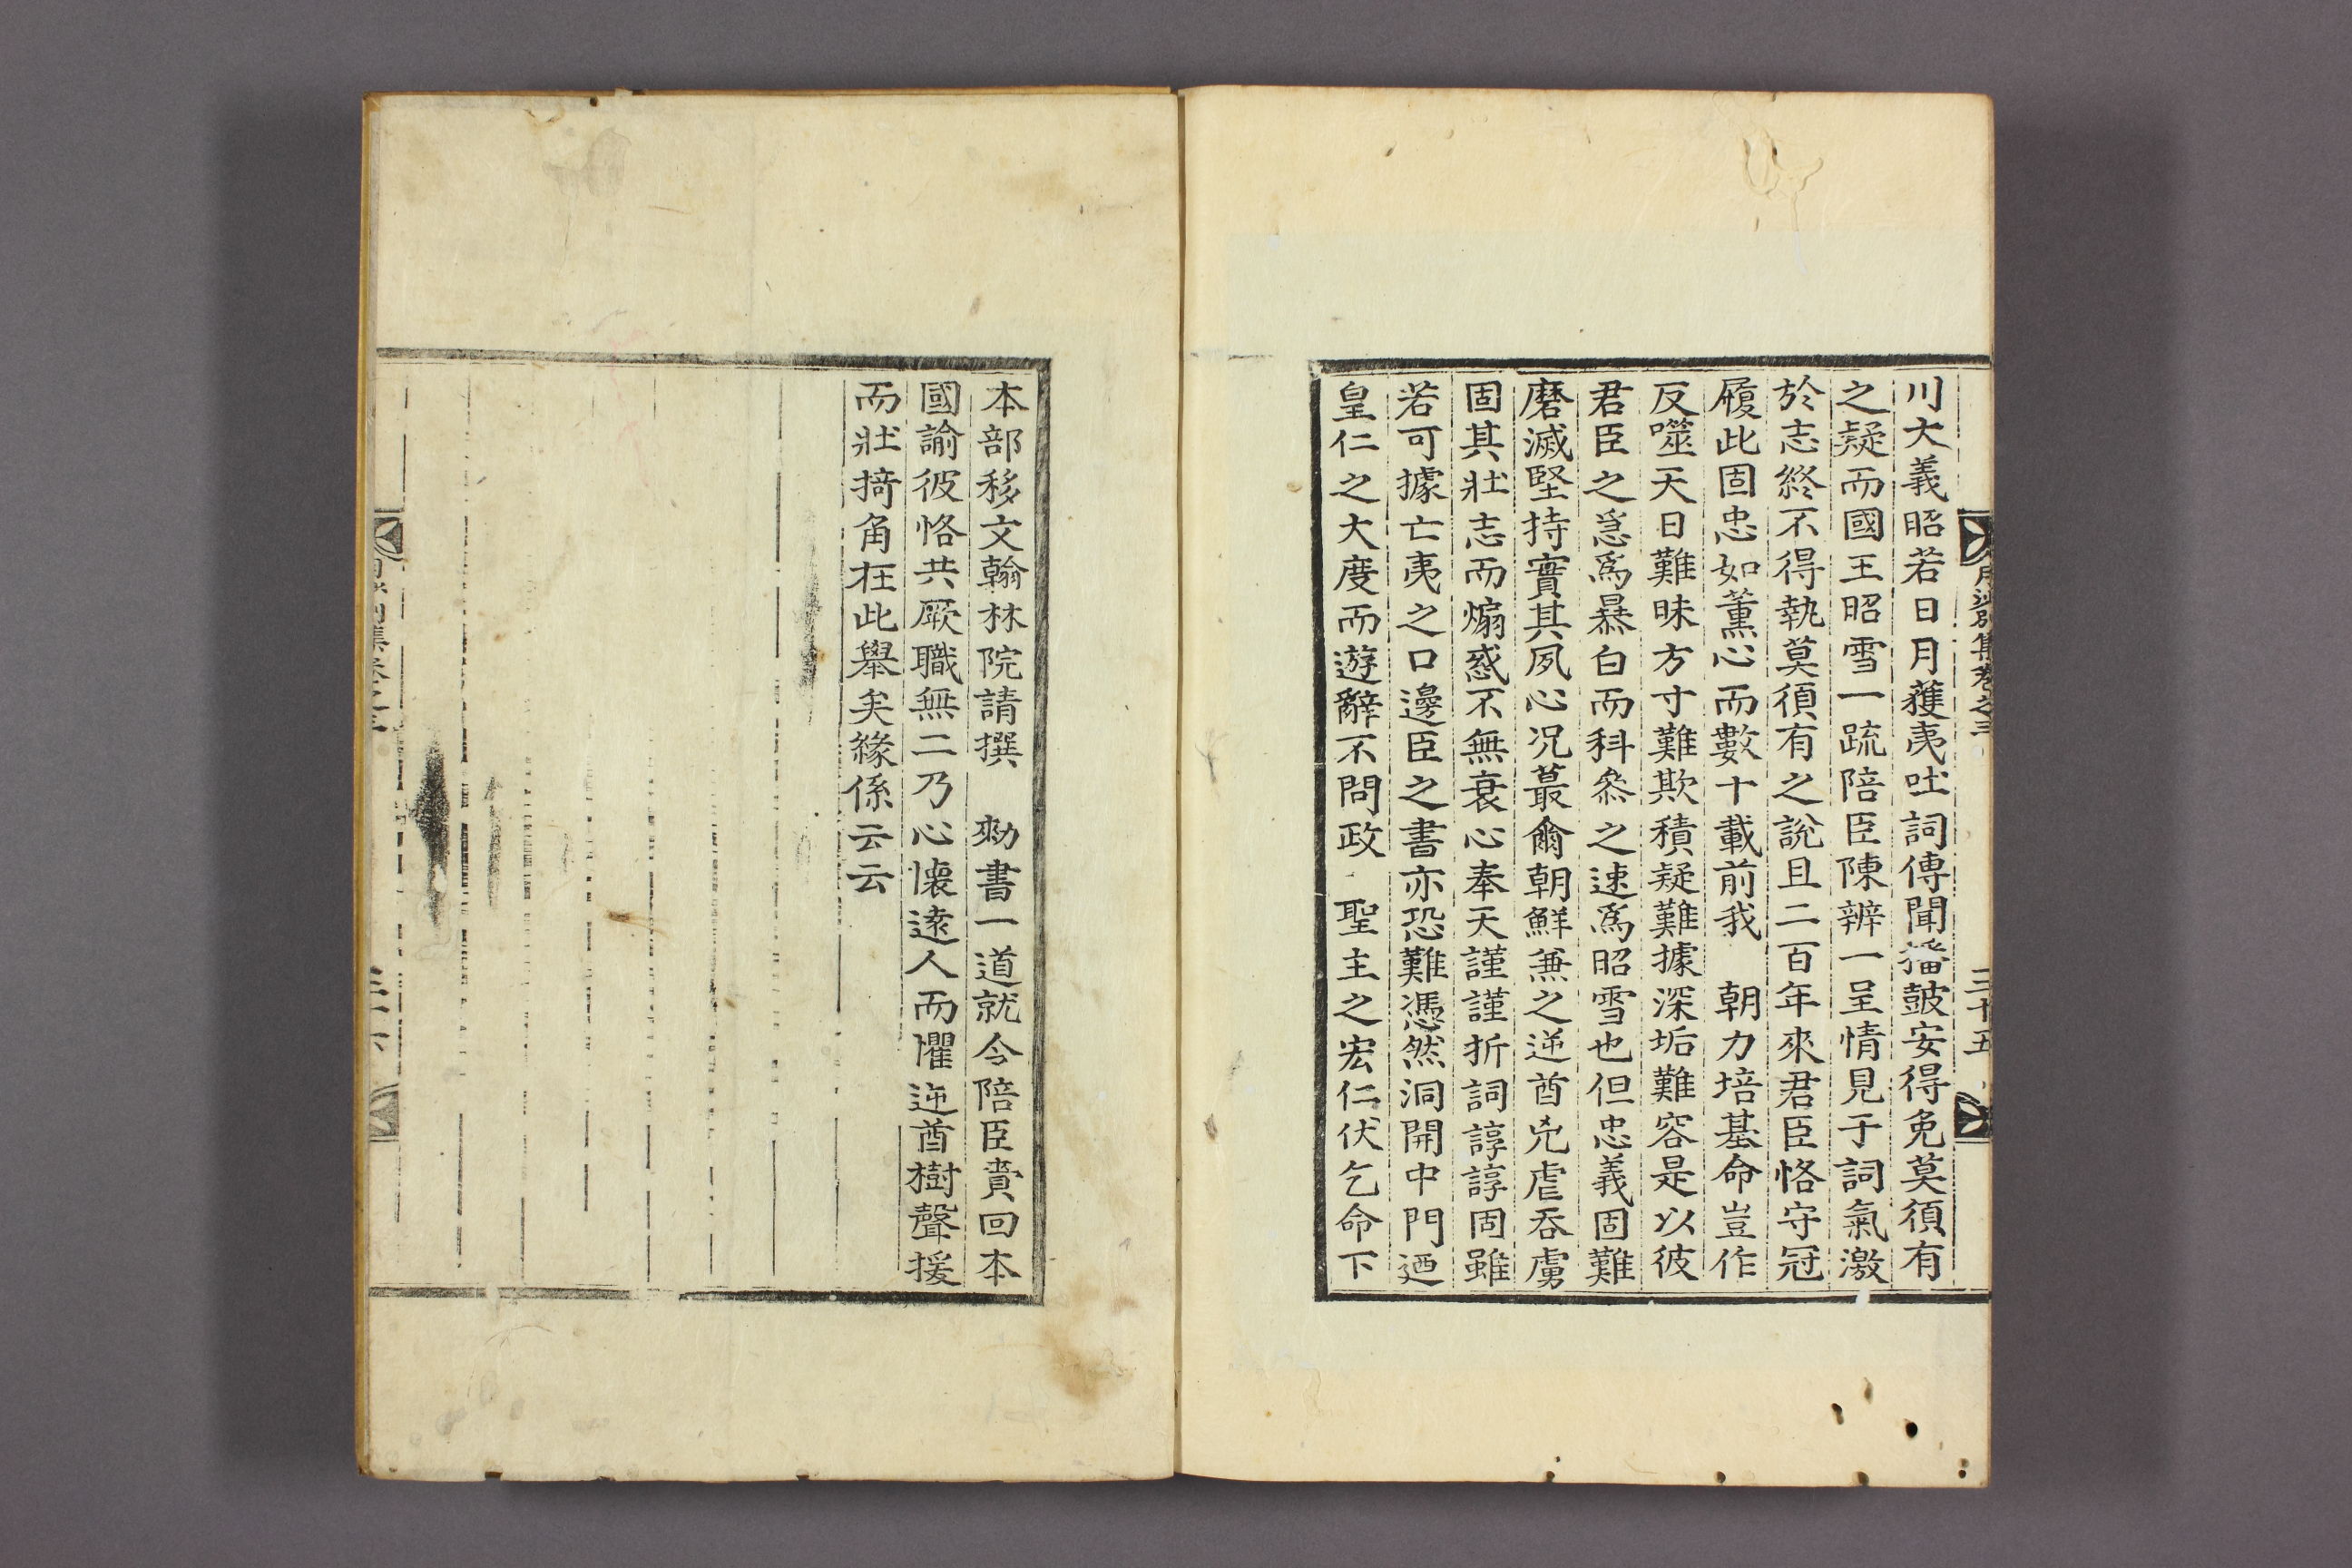 月沙別集卷之三 三十五
川大義昭若日月蓷夷吐詞傳聞播皷安得免莫須有
之疑而國王昭雪一䟽陪臣陳辨一呈情見于詞氣激
於志終不得執莫須有之說且二百年來君臣恪守冠
履此固忠如薫心而數十載前我 朝力培基命豈作
反噬天日難昧方寸難欺積疑難據深垢難容是以彼
君臣之急爲暴白而科叅之速爲昭雪也但忠義固難
磨滅堅持實其夙心况蕞爾朝鮮兼之逆酋兇虐呑虜
固其壯志而煽惑不無衰心奉天謹謹折詞諄諄固雖
若可據亡夷之口邊臣之書亦恐難憑然洞開中門廼
皇仁之大度而遊辭不問政 聖主之宏仁伏乞命下
本部移文翰林院請撰 勑書一道就令陪臣賫回本
國諭彼恪共厥職無二乃心懷遠人而懼逆酋樹聲援
而壯掎角在此舉矣緣係云云
集卷之三 三十六